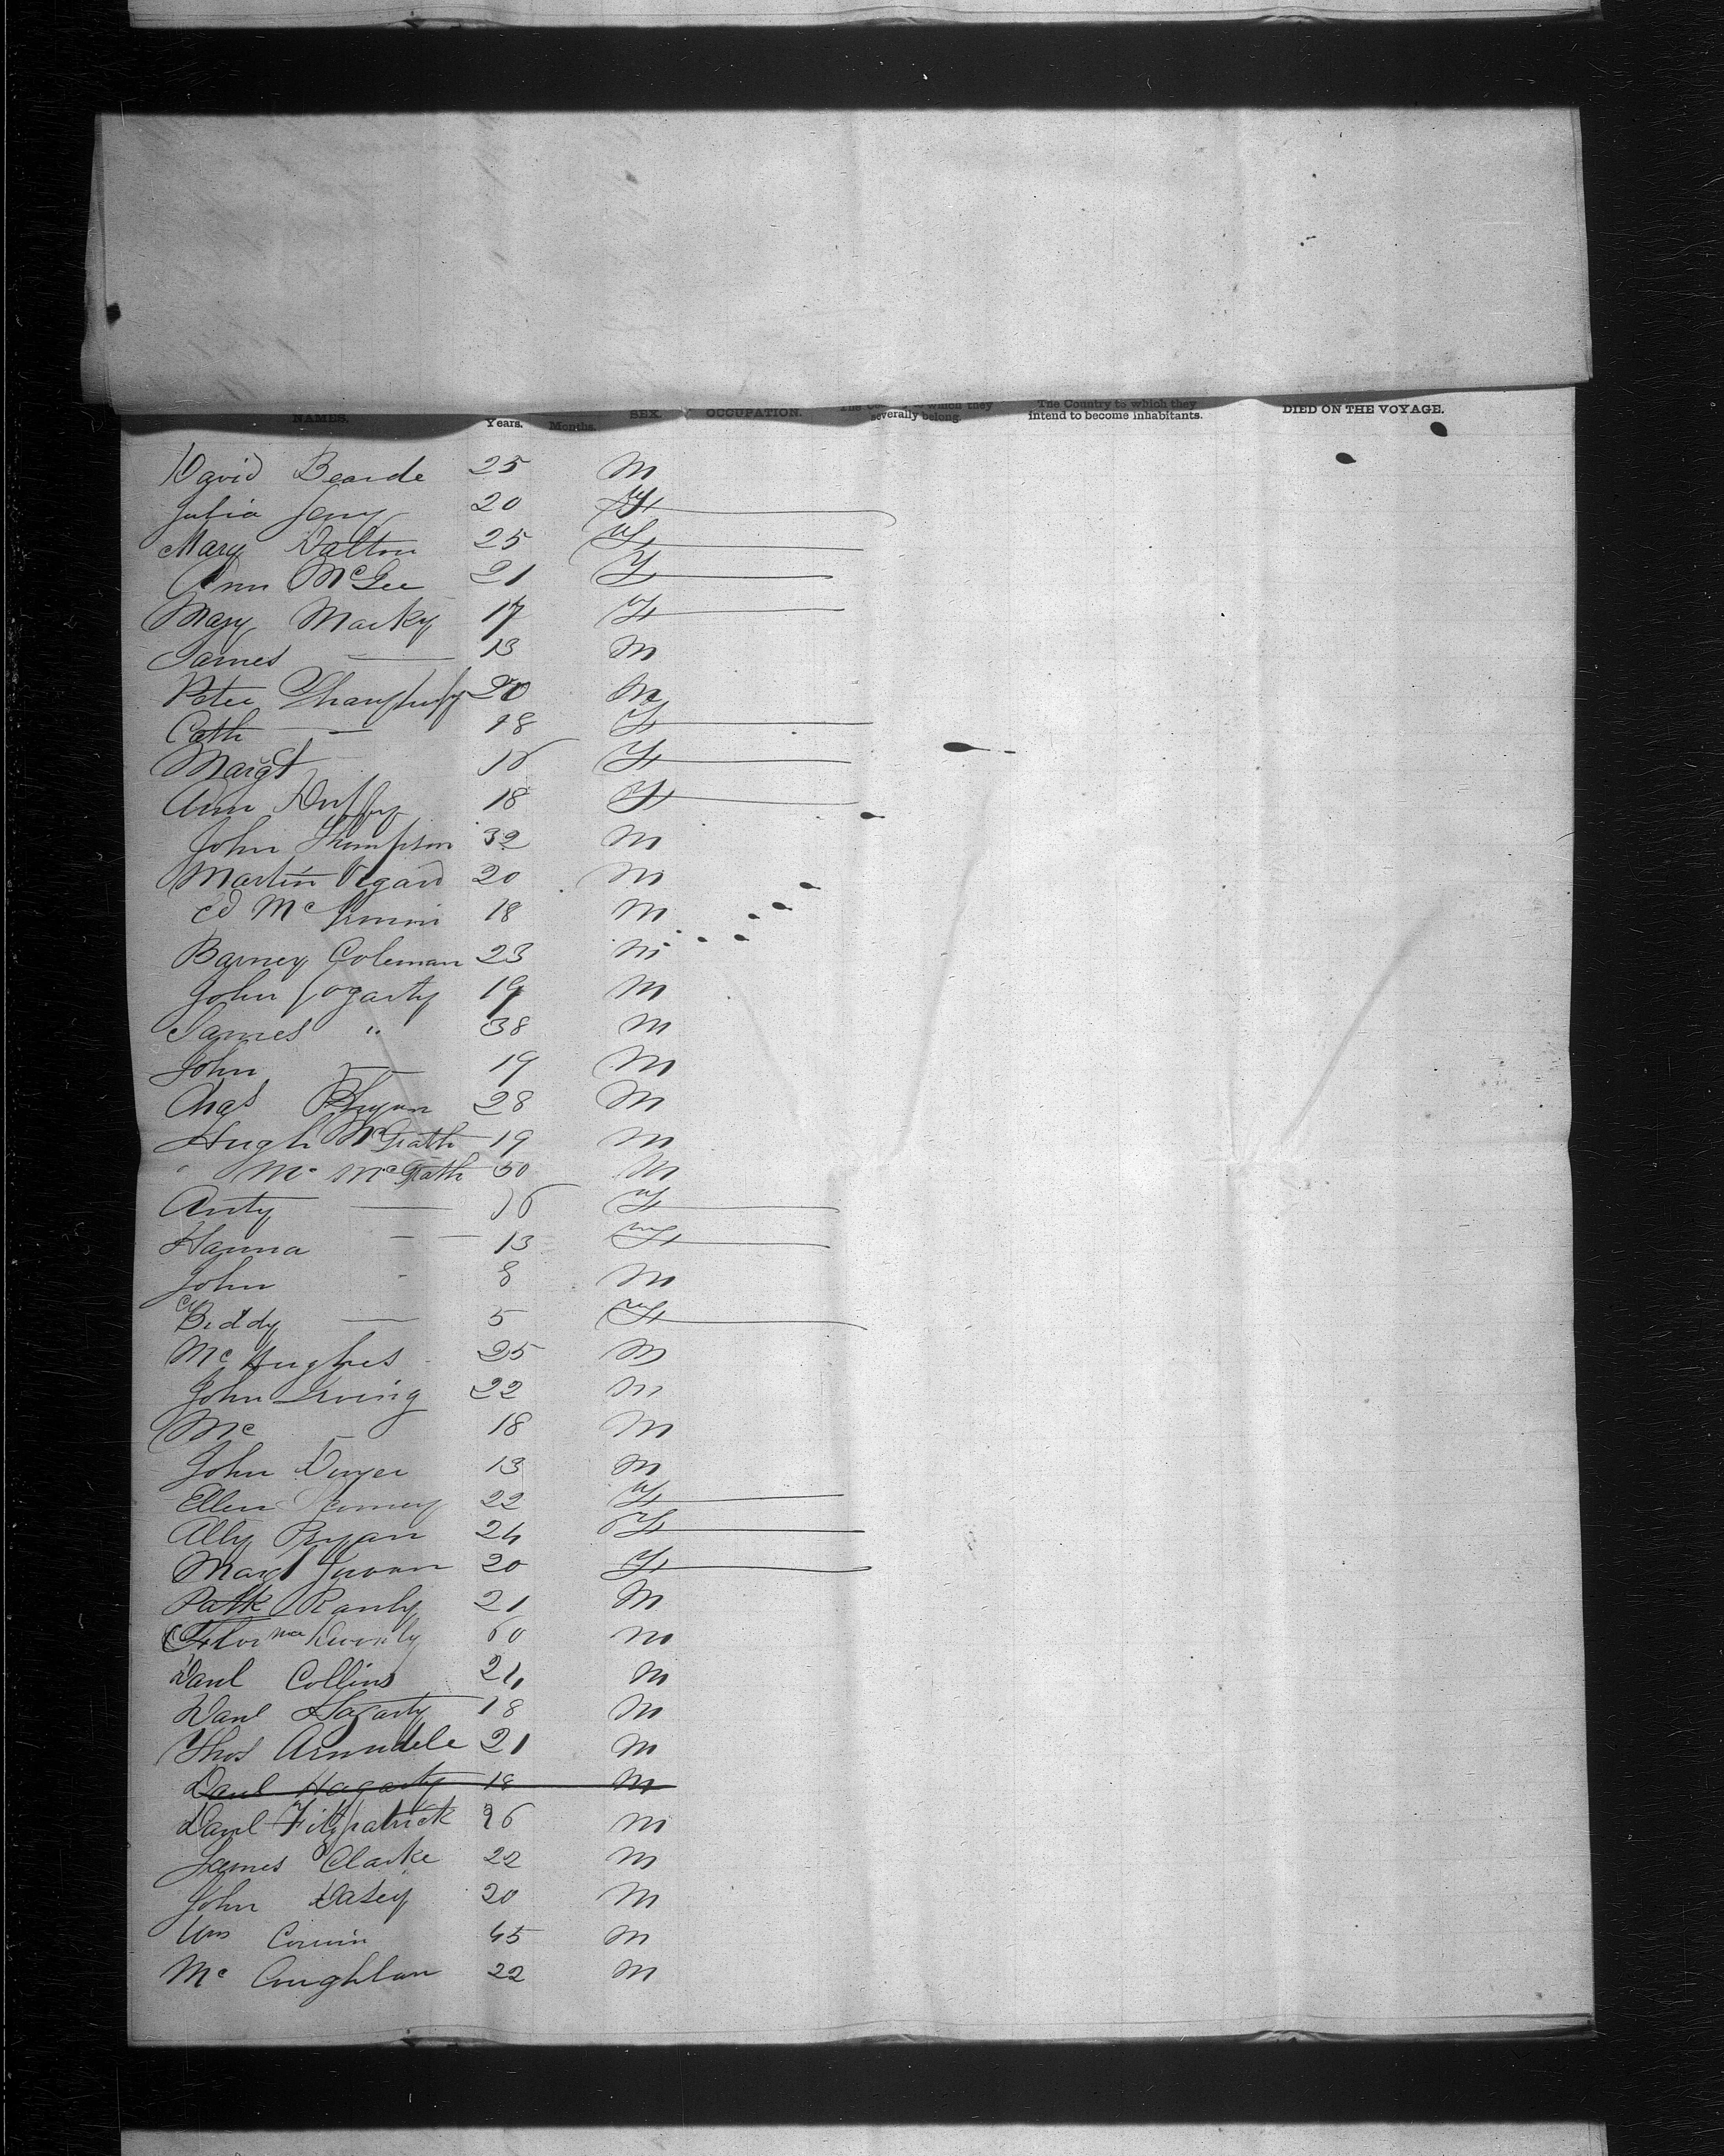 NAMES. Years. Months. SEX. OCCUPATION. The Country to which they severally belong. The Country to which they intend to become inhabitants. DIED ON THE VOYAGE.
David Bearde 25 M
Julia 20 F
Mary Dalton 25 F
Ann McGee 21 F
Mary Marky 17 F
James — 13 M
Peter 20 M
Cath — 18 F
Margt — 16 F
Ann Duffy 18 F
John Thompson 32 M
Martin 20 M
Ed Mc 18 M
Barney Coleman 23 M
John Fogarty 19 M
James " 38 M
John — 19 M
Chas 28 M
Hugh McGrath 19 M
Mc McGrath 50 M
Anty — 16 F
Hanna — 13 F
John - 8 M
Biddy — 5 F
Mc Hughes 25 M
John Irving 22 M
Mc 18 M
John Dwyer 13 M
Ellen 22 F
Ally Bryan 24 F
Margt 20 F
Patk 21 M
60 M
Danl Collins 24 M
Danl Hagarty 18 M
Thos Arundele 21 M
Danl Hagarty 18 M
Danl Fitzpatrick 26 M
James Clarke 22 M
John Dasey 20 M
Wm 45 M
Mc Coughlan 22 M